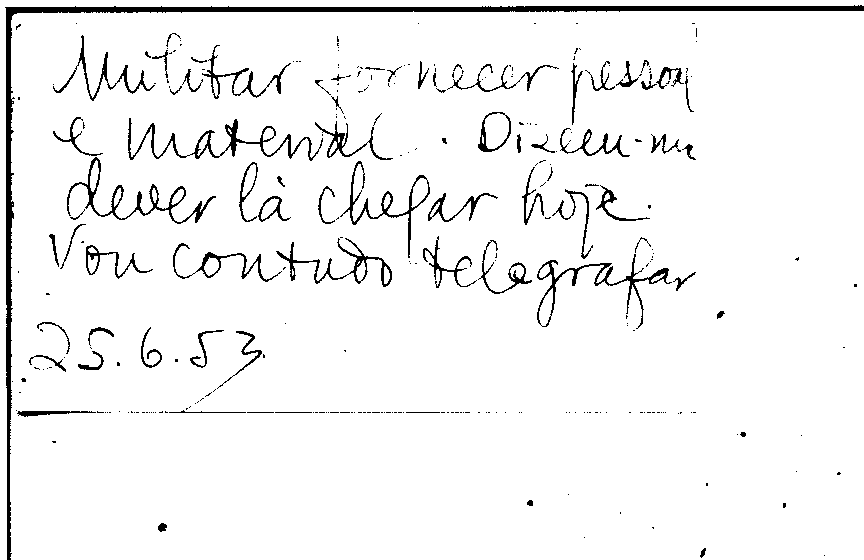 Militar fornecer pessoa
e material. Dizem-me
dever lá chegar hoje.
Vou contudo telegrafar
25.6.53